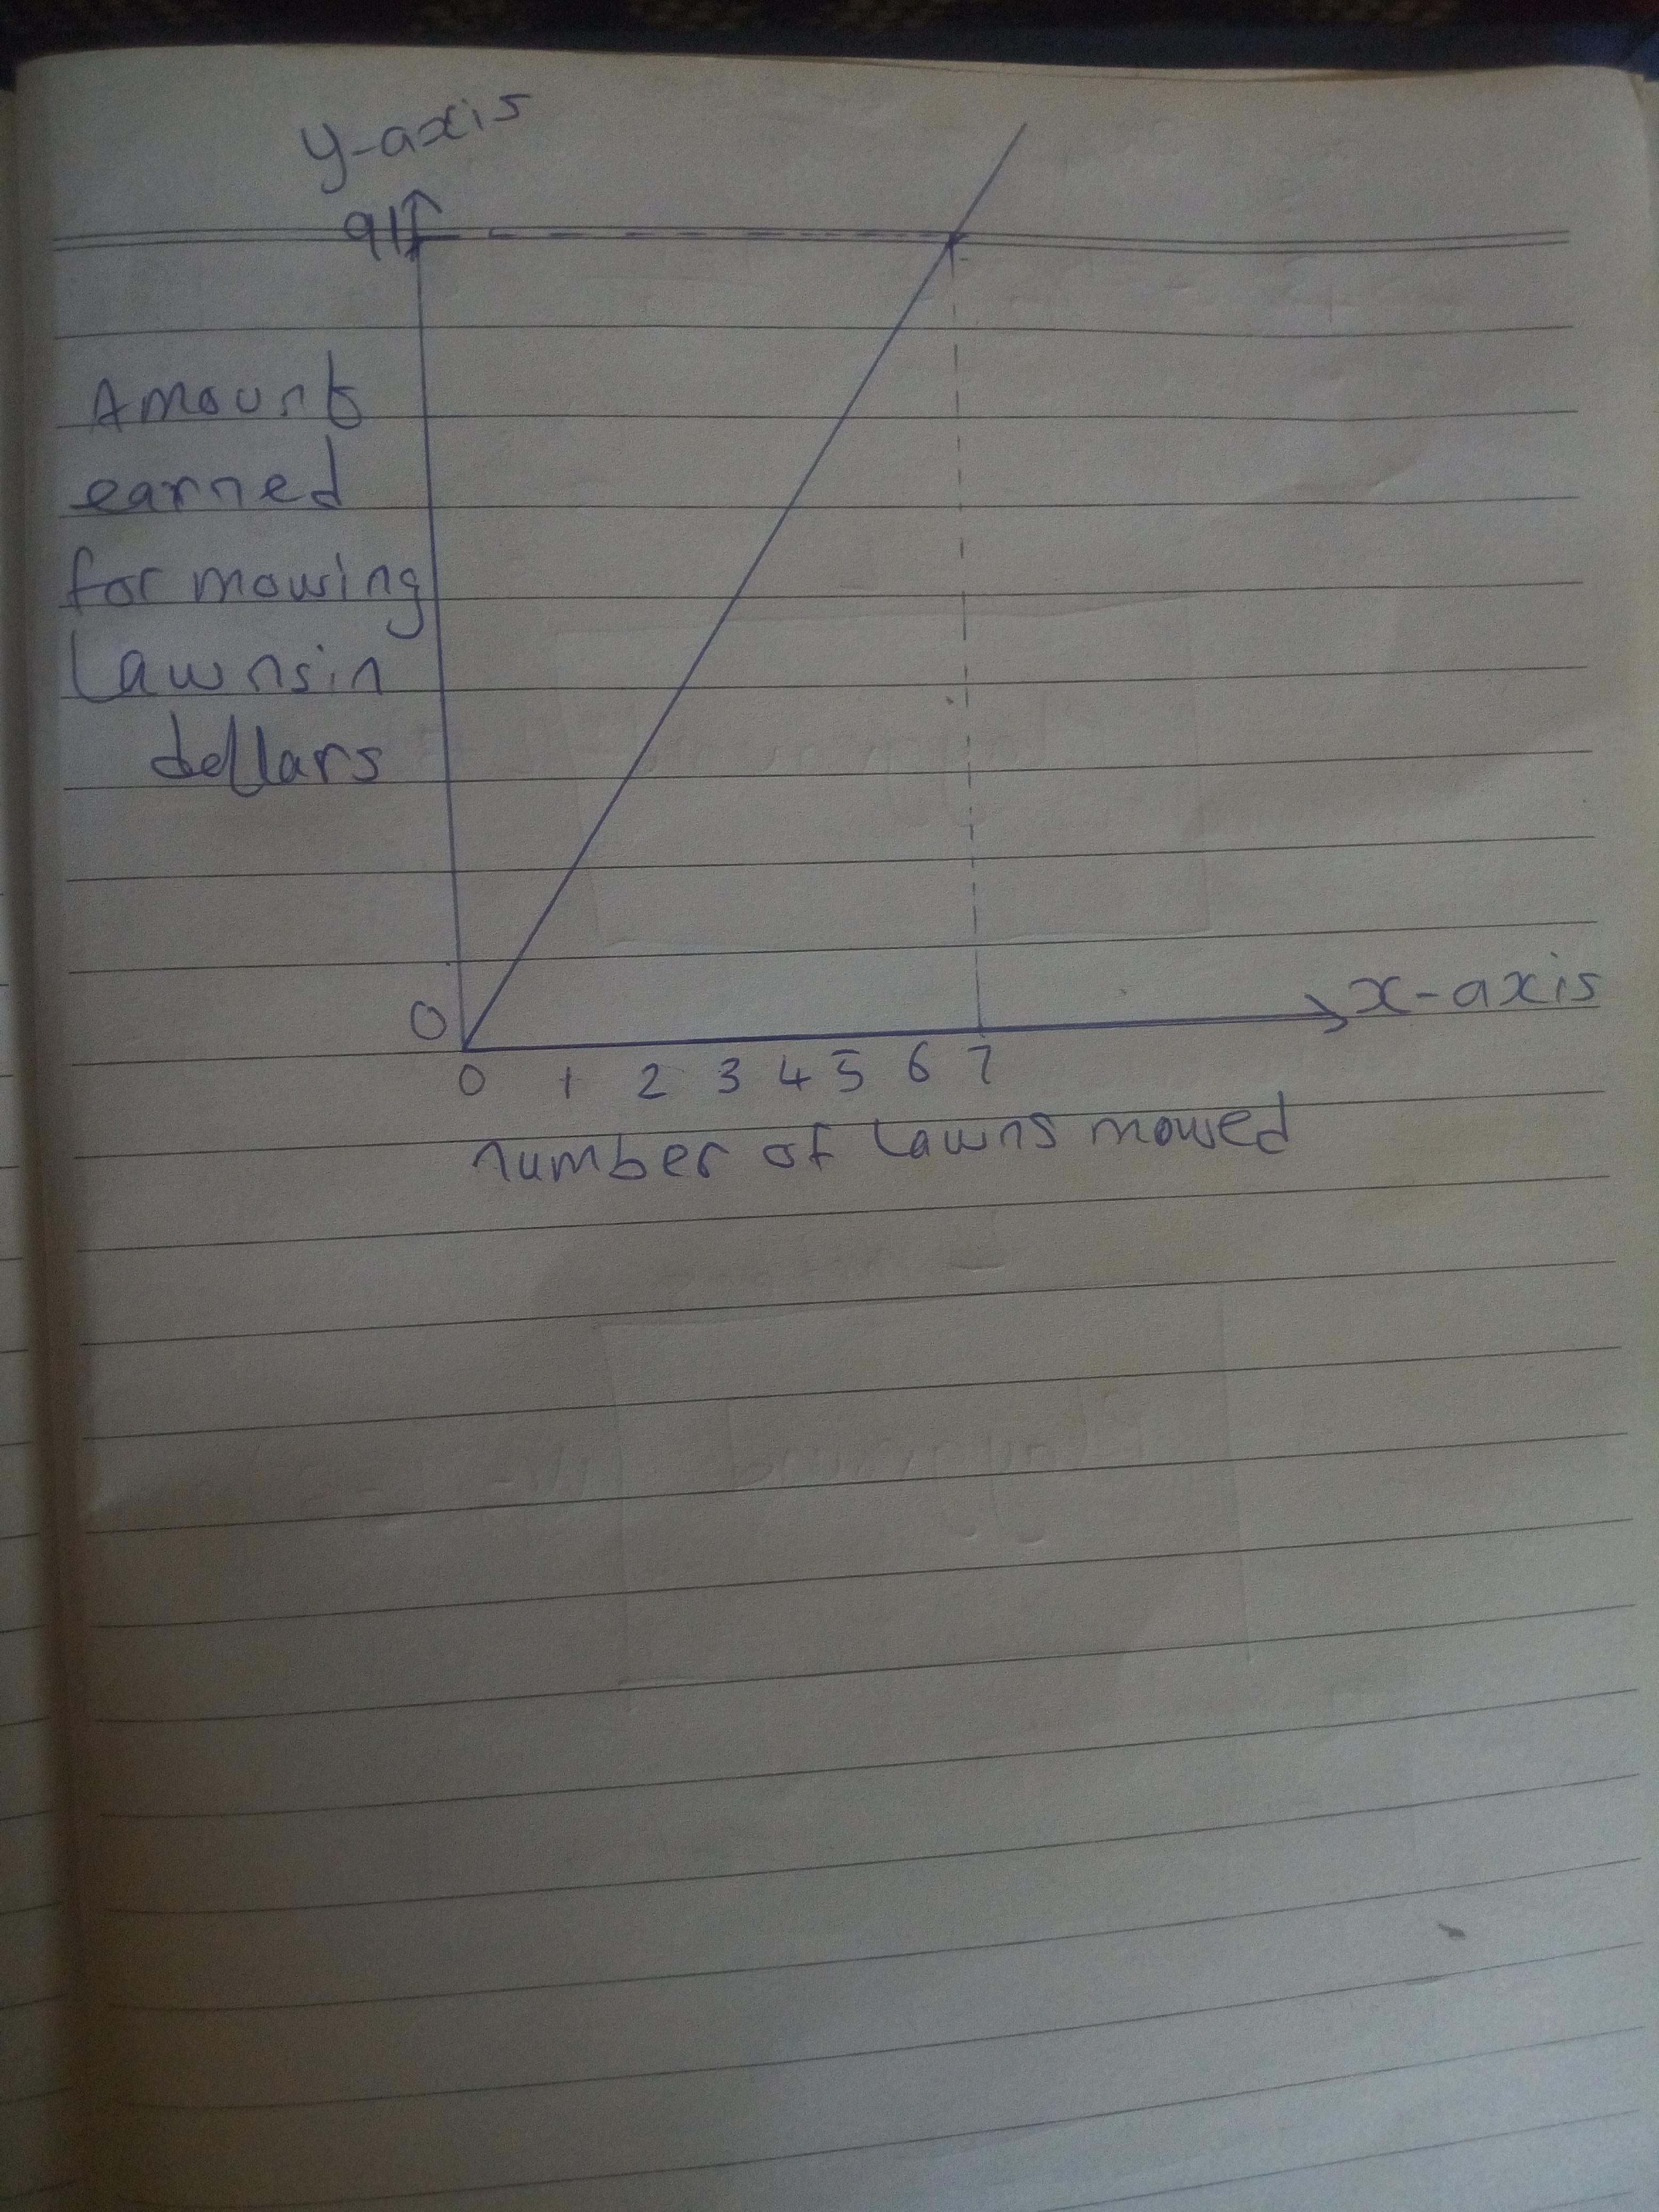 y-axis
91
Amount
earned
for mowing
Lawnsin
dollars
0
x-axis
0 1 2 3 4 5 6 7
number of Lawns mowed